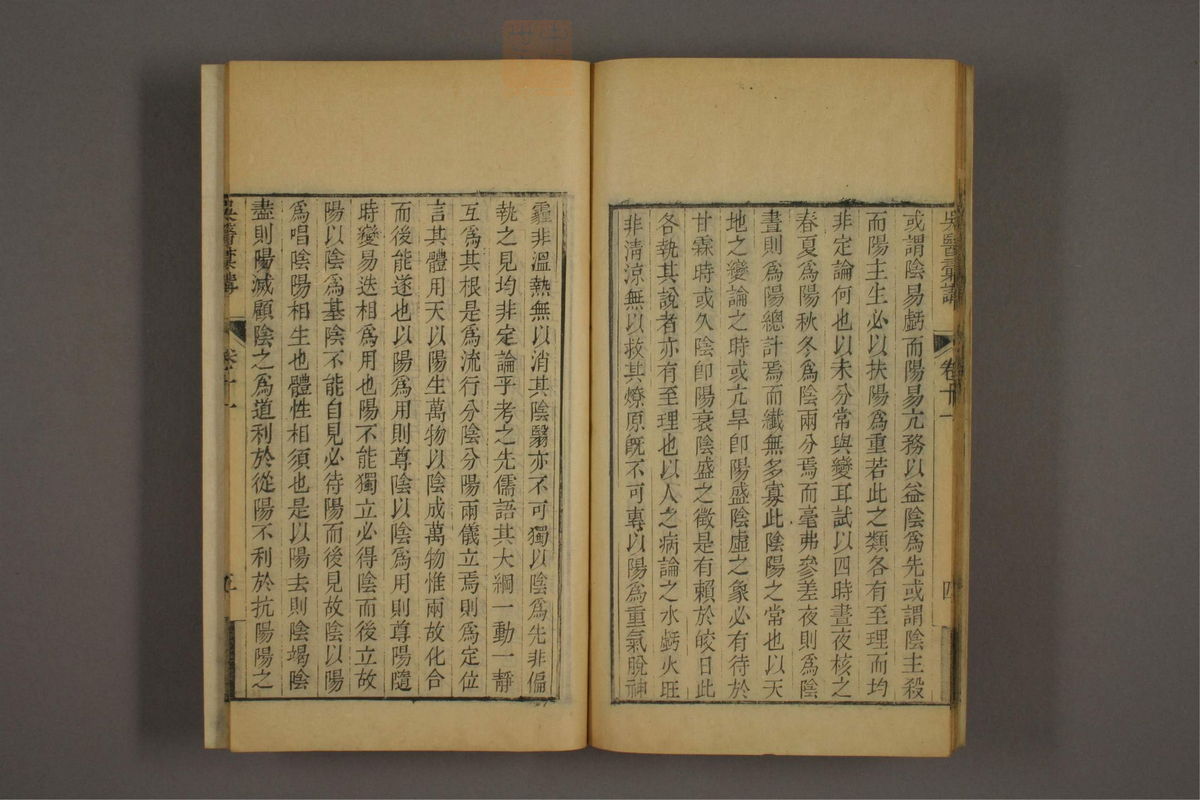 吳醫彙講
卷十一
四
或謂陰易虧而陽易亢務以益陰爲先或謂陰主殺
而陽主生必以扶陽爲重若此之類各有至理而均
非定論何也以未分常與變耳試以四時晝夜核之
春夏爲陽秋冬爲陰兩分焉而毫弗參差夜則爲陰
晝則爲陽總計焉而纖無多寡此陰陽之常也以天
地之變論之時或亢旱卽陽盛陰虛之象必有待於
甘霖時或久陰卽陽衰陰盛之徵是有賴於皎日此
各執其說者亦有至理也以人之病論之水虧火旺
非淸涼無以救其燎原旣不可專以陽爲重氣脫神
霾非溫熱無以消其陰翳亦不可獨以陰爲先非偏
執之見均非定論乎考之先儒語其大綱一動一靜
互爲其根是爲流行分陰分陽兩儀立焉則爲定位
言其體用天以陽生萬物以陰成萬物惟兩故化合
而後能遂也以陽爲用則尊陰以陰爲用則尊陽隨
時變易迭相爲用也陽不能獨立必得陰而後立故
陽以陰爲基陰不能自見必待陽而後見故陰以陽
爲唱陰陽相生也體性相須也是以陽去則陰竭陰
盡則陽滅顧陰之爲道利於從陽不利於抗陽陽之
吳醫彙講
卷十一
五